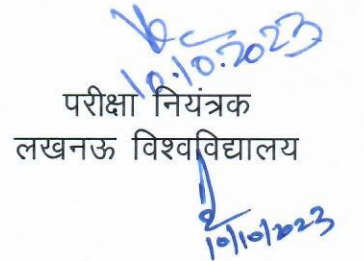 10.10.2023
परीक्षा नियंत्रक
लखनऊ विश्वविद्यालय
10/10/2023